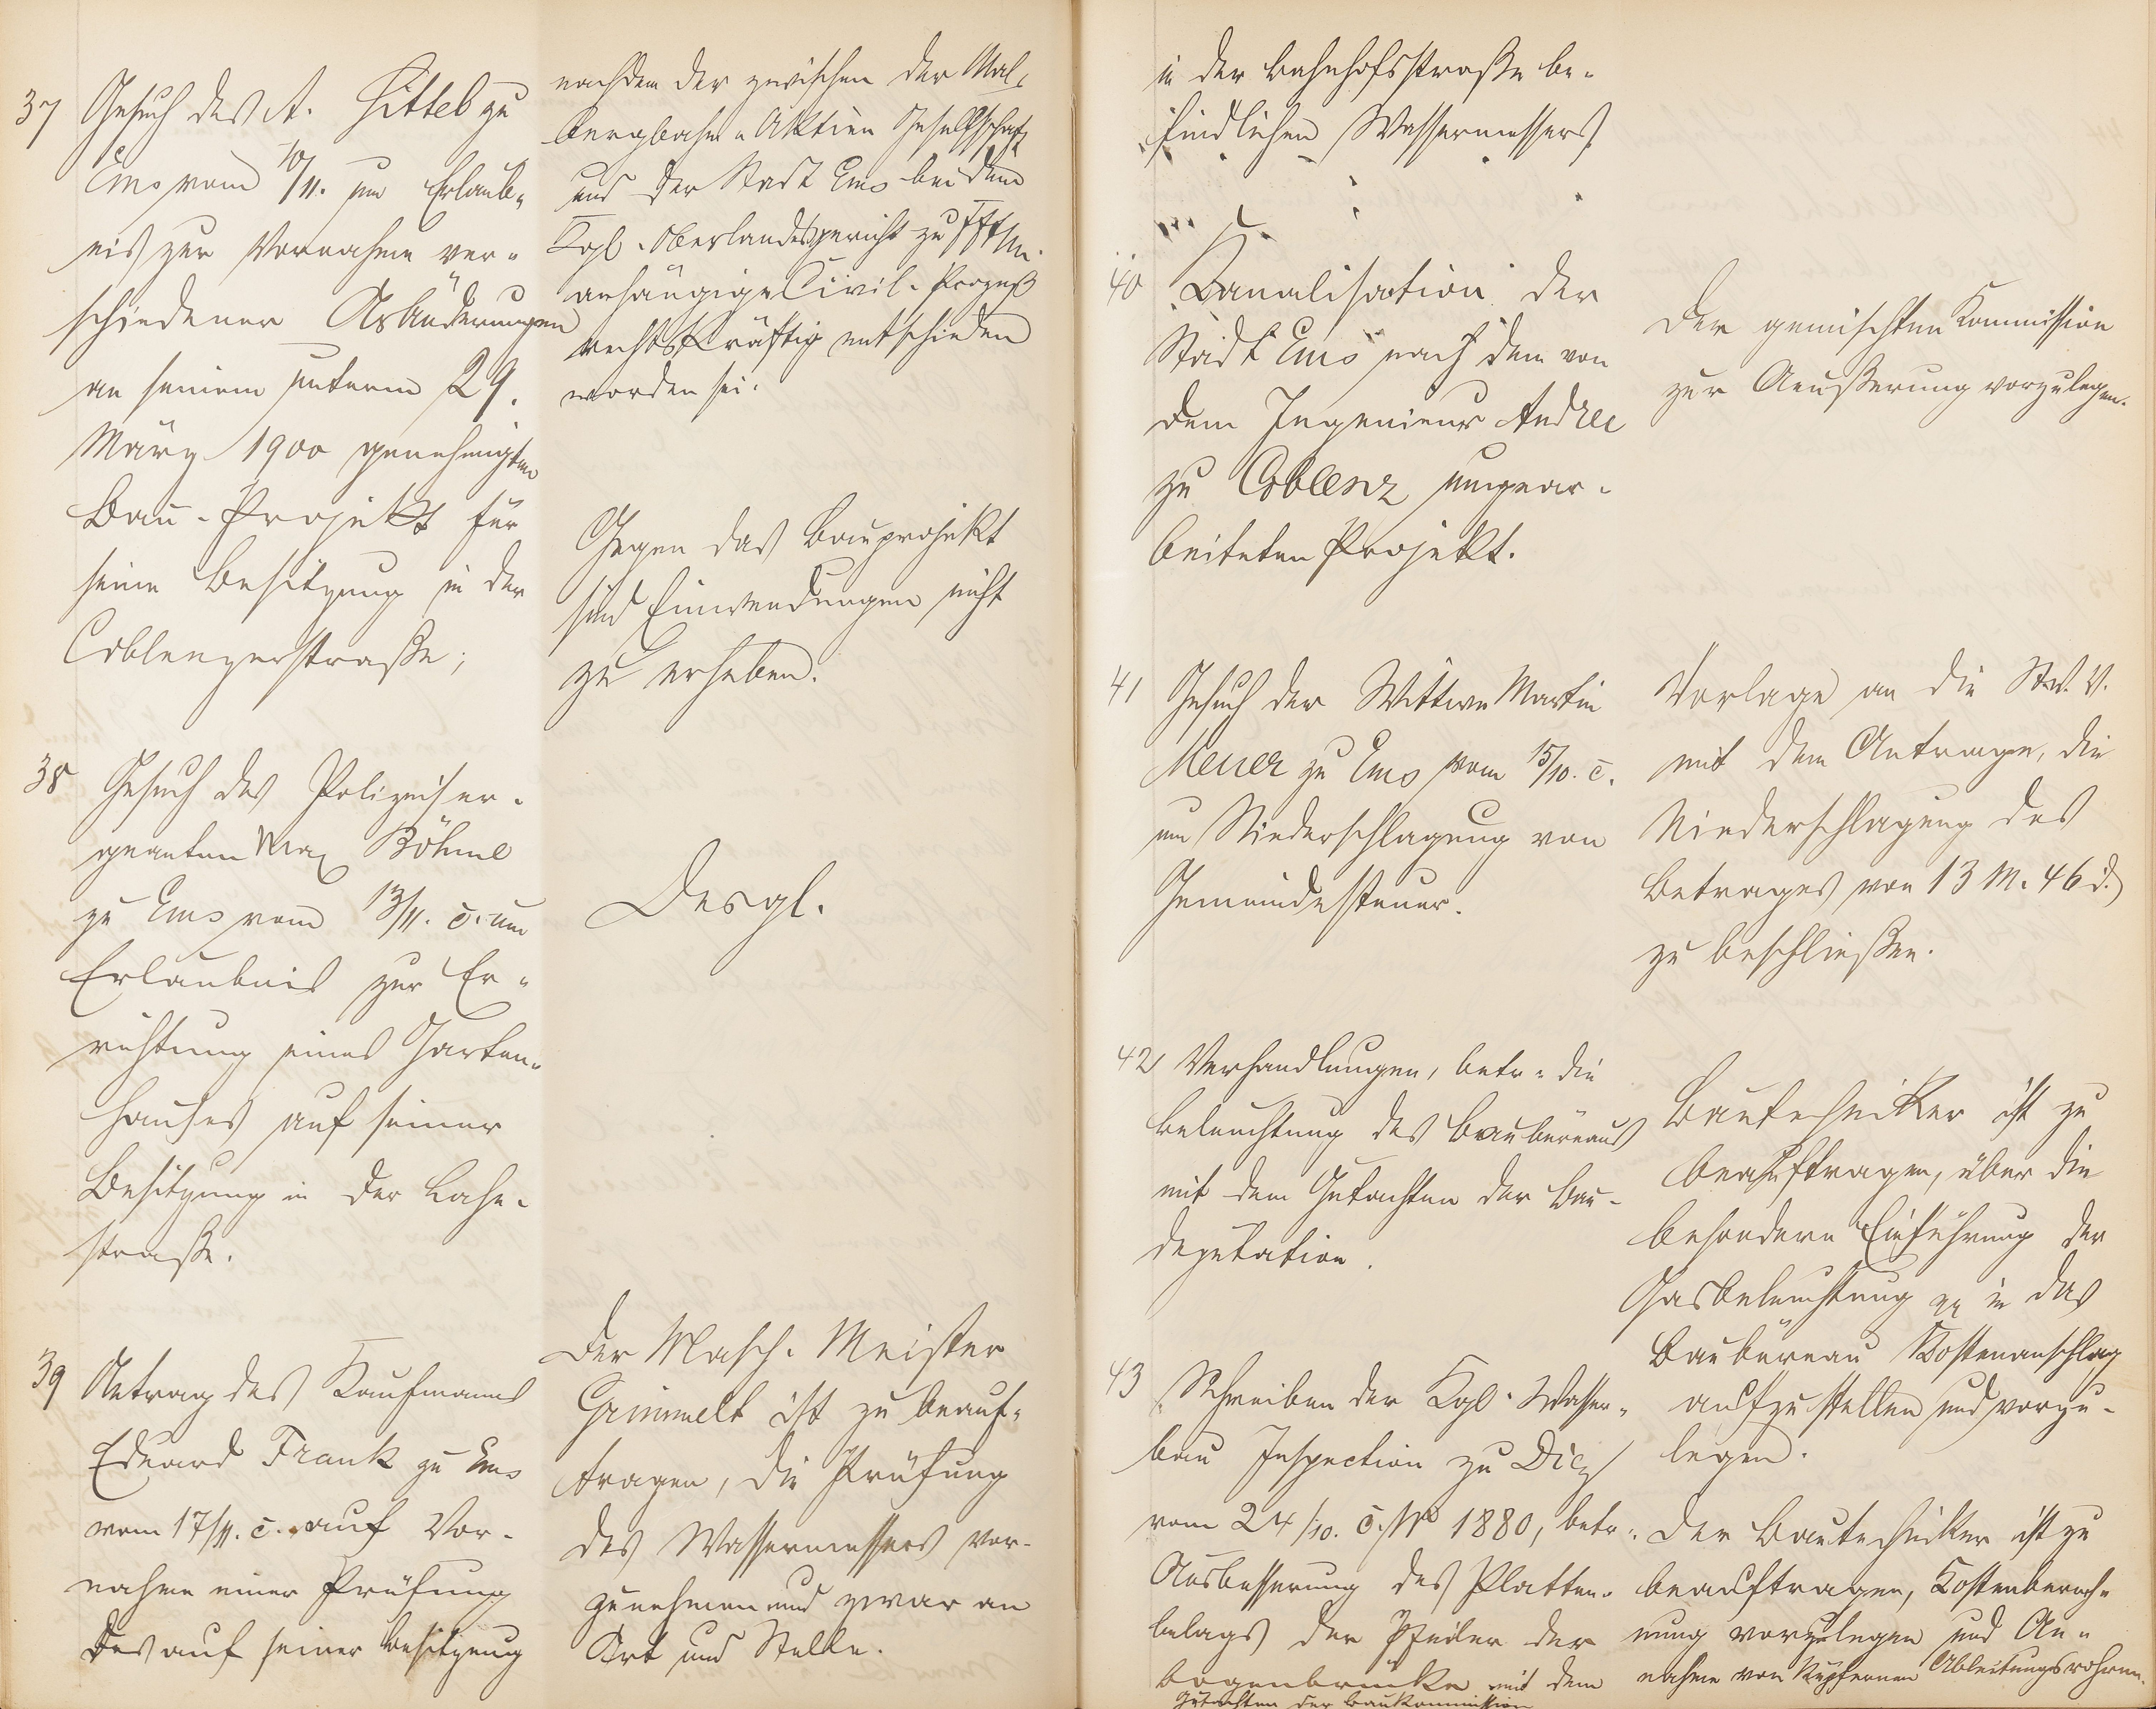 37 Gesuch des A. Kittel zu
Ems vom 10/11. um Erlaub-
nis zur Vornahme ver-
schiedener Abänderungen
an seinem unterm 29.
März 1900 genehmigten
Bau-Projekt für
seine Besitzung in der
Coblenzerstraße;
nachdem der zwischen der Mal-
bergbahn-Aktien Gesellschaft
und der Stadt Ems bei dem
Kgl. Oberlandesgericht zu Ffth.
anhängige Civil-Prozeß
rechtskräftig entschieden
worden sei.
Gegen das Bauprojekt
sind Einwendungen nicht
zu erheben.
38 Gesuch des Polizeiser-
geanten Max Böhme
zu Ems vom 13/11. c. um
Erlaubnis zur Er-
richtung eines Garten-
hauses auf seiner
Besitzung in der Lahn-
straße.
Desgl.
39 Antrag des Kaufmanns
Eduard Frank zu Ems
vom 17/11. c. auf Vor-
nahme einer Prüfung
des auf seiner Besitzung
Der Masch. Meister
Grimmelt ist zu beauf-
tragen, die Prüfung
des Wassermessers vor-
zunehmen und zwar an
Ort und Stelle.
in der Bahnhofsstraße be-
findlichen Wassermessers
40 Kanalisation der
Stadt Ems nach dem von
dem Ingenieur Andree
zu Coblenz umgear-
beiteten Projekt.
Der gemischten Kommission
zur Aeußerung vorzulegen.
41 Gesuch der Wittwe Martin
Meuer zu Ems vom 15/10. c.
um Niederschlagung von
Gemeindesteuer.
Vorlage an die Stv. V.
mit dem Antrage, die
Niederschlagung des
Betrages von 13 M. 46 d.
zu beschließen.
42 Verhandlungen, betr. die
Beleuchtung des Baubüreaus
mit dem Gutachten der Bau-
deputation.
Bautechniker ist zu
beauftragen, über die
besondere Einführung der
Gasbeleuchtung in das
Baubüreau Kostenanschlag
aufzustellen und vorzu-
legen.
43 Schreiben der Kgl. Wasser-
bau Inspection zu Diez
vom 24/10. c. No 1880, betr.
Ausbesserung des Platten-
belags der Pfeiler der
Bogenbrücke mit dem
Gutachten der Baukommission
Der Bautechniker ist zu
beauftragen, Kostenberech-
nung vorzulegen und An-
nahme von kupfernen Ableitungsrohren.